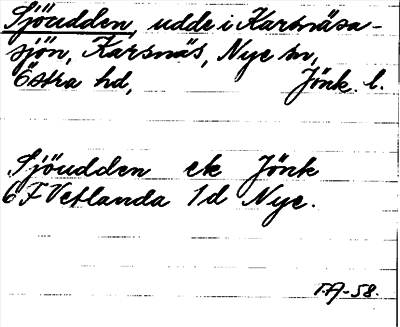 Sjöudden, udde i Karsnäsa-
sjön, Karsnäs, Nye sn,
Östra hd, Jönk. l.
Sjöudden ek Jönk
6 F Vetlanda 1d Nye.
T.A-58.